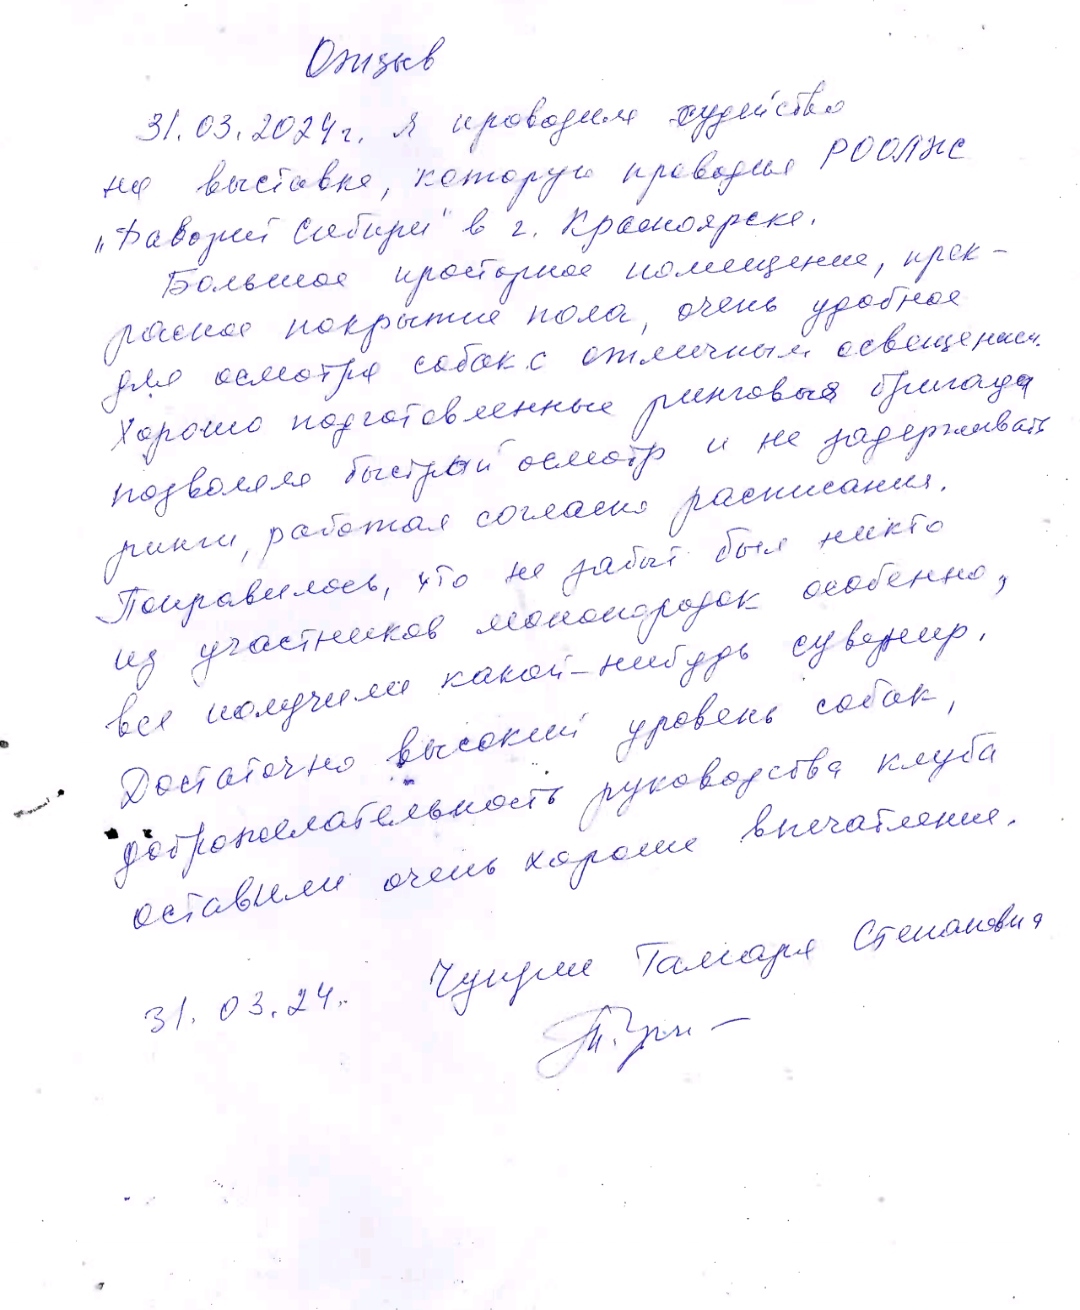 Отзыв
31.03.2024г. я проводила судейство
на выставке, которую проводила РООЛЖС
„Фаворит Сибири" в г. Красноярске.
Большое просторное помещение, прек-
расное покрытие пола, очень удобное
для осмотра собак с отличным освещением.
Хорошо подготовленные ринговые бригада
позволяла быстрый осмотр и не задерживать
ринги, работая согласно расписания.
Понравилось, что не забыт был никто
из участников монопородок особенно,
все получили какой-нибудь сувенир.
Достаточно высокий уровень собак,
доброжелательность руководства клуба
оставили очень хорошие впечатление.
31.03.24. Тамара Степановна